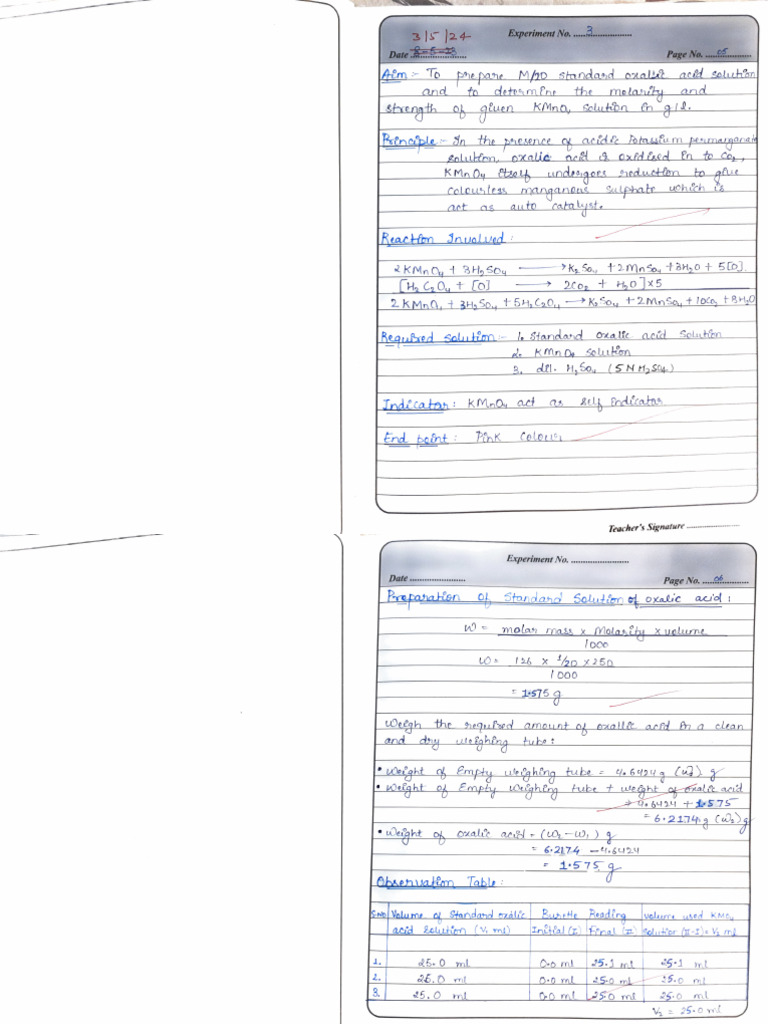 3/5/24
Experiment No. 3
Date 8-5-23
Page No. 05
Aim :- To prepare M/20 standard oxalic acid solution
and to determine the molarity and
strength of given KMnO4 solution in g/l.
Principle :- In the presence of acidic Potassium permanganate
solution, oxalic acid is oxidised in to CO2,
KMnO4 itself undergoes reduction to give
colourless manganous sulphate which is
act as auto catalyst.
Reaction Involved :
2KMnO4 + 3H2SO4 → K2SO4 + 2MnSO4 + 3H2O + 5[O].
[H2C2O4 + [O] → 2CO2 + H2O] x 5
2KMnO4 + 3H2SO4 + 5H2C2O4 → K2SO4 + 2MnSO4 + 10CO2 + 8H2O
Required solution :- 1. Standard Oxalic acid Solution
2. KMnO4 solution
3. dil. H2SO4 (5N H2SO4)
Indicator : KMnO4 act as self indicator
End point : Pink Colour
Teacher's Signature
Experiment No.
Date
Page No. 06
Preparation of Standard Solution of oxalic acid :
W = molar mass x Molarity x volume
1000
W = 126 x 1/20 x 250
1000
= 1.575 g
Weigh the required amount of oxallic acid in a clean
and dry weighing tube :
• Weight of Empty weighing tube = 4.6424 g g
• Weight of Empty Weighing tube + weight of oxalic acid
= 4.6424 + 1.575
= 6.2174 g (W2) g
• Weight of oxalic acid = (W2 - W1) g
= 6.2174 - 4.6424
= 1.575 g
Observation Table :
S.No Volume of Standard oxalic Burette Reading volume used KMnO4
acid solution (V1 ml) Initial (I) Final (II) Solution (II-I) = V2 ml
1. 25.0 ml 0.0 ml 25.1 ml 25.1 ml
2. 25.0 ml 0.0 ml 25.0 ml 25.0 ml
3. 25.0 ml 0.0 ml 25.0 ml 25.0 ml
V2 = 25.0 ml